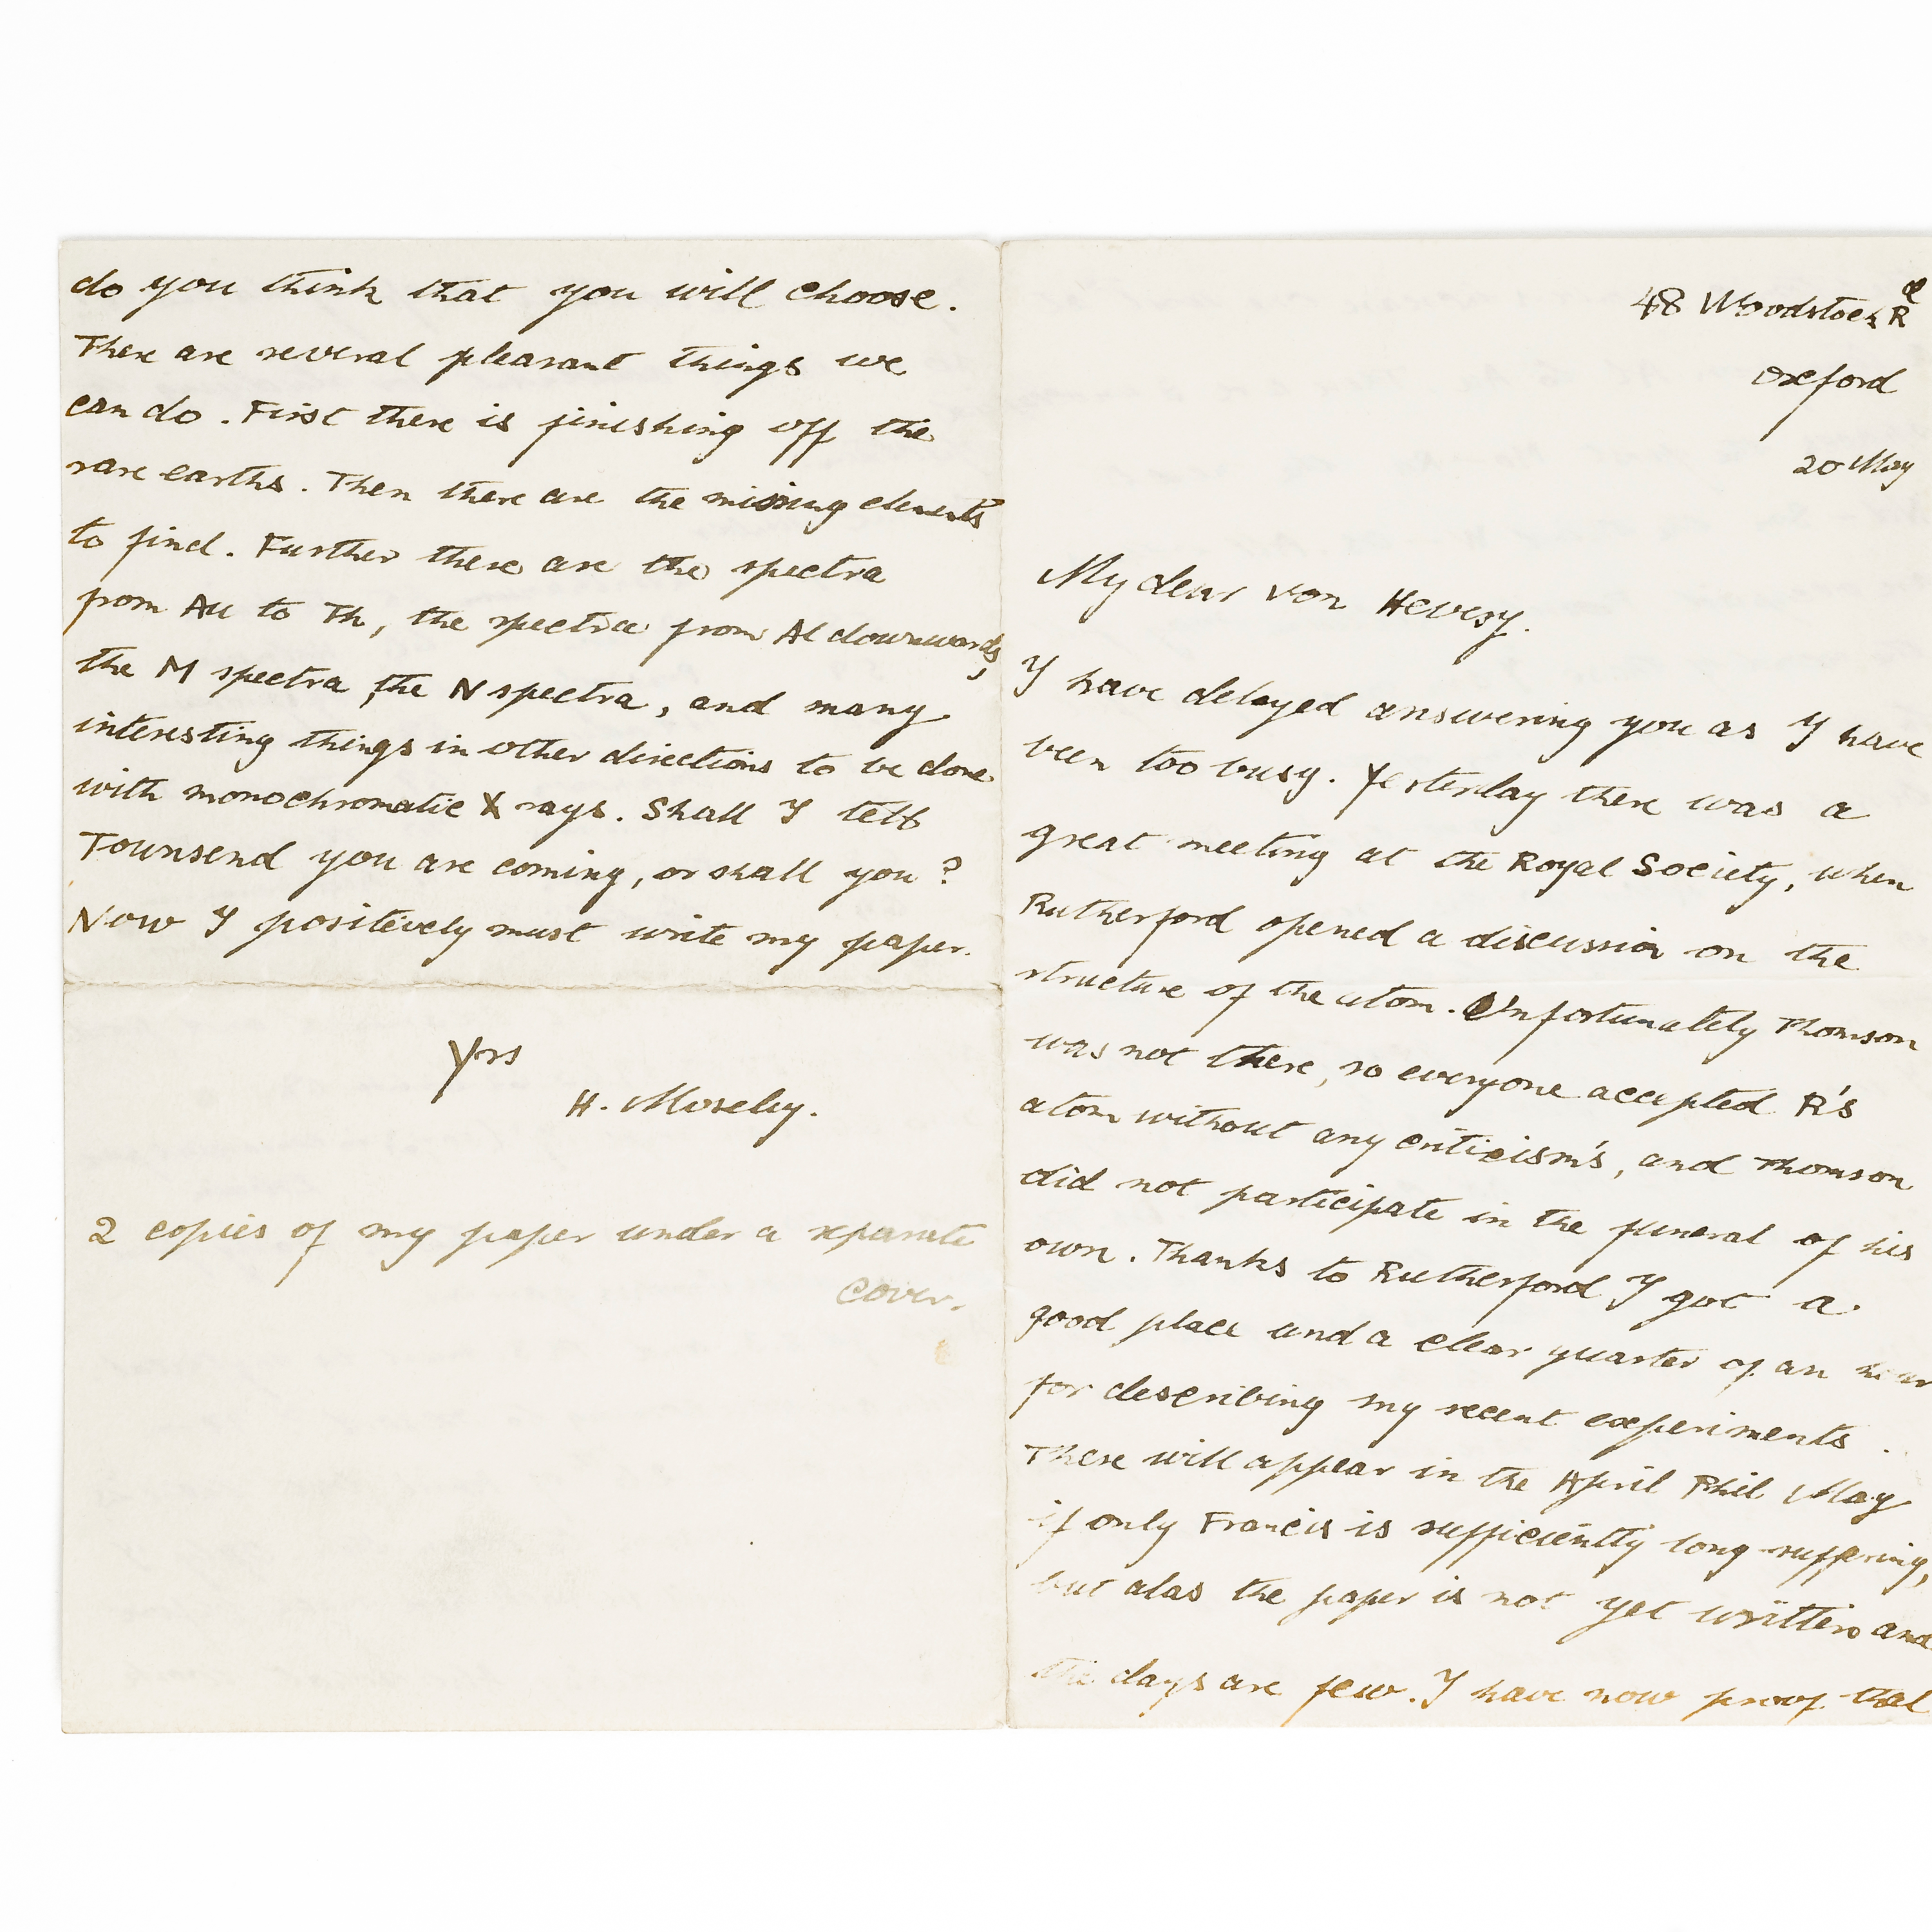 do you think that you will choose.
There are several pleasant things we
can do. First there is finishing off the
rare earths. Then there are the missing elements
to find. Further there are the spectra
from Au to Th, the spectra from Al downwards,
the M spectra, the N spectra, and many
interesting things in other directions to be done
with monochromatic X rays. Shall I tell
Townsend you are coming, or shall you?
Now I positively must write my paper.
Yrs
H. Moseley.
2 copies of my paper under a separate
cover.
48 Woodstock Rd
Oxford
20 May
My dear von Hevesy.
I have delayed answering you as I have
been too busy. Yesterday there was a
great meeting at the Royal Society, when
Rutherford opened a discussion on the
structure of the atom. Unfortunately Thomson
was not there, so everyone accepted R's
atom without any criticisms, and Thomson
did not participate in the funeral of his
own. Thanks to Rutherford I got a
good place and a clear quarter of an hour
for describing my recent experiments.
These will appear in the April Phil Mag
if only Francis is sufficiently long-suffering,
but alas the paper is not yet written and
the days are few. I have now proof that